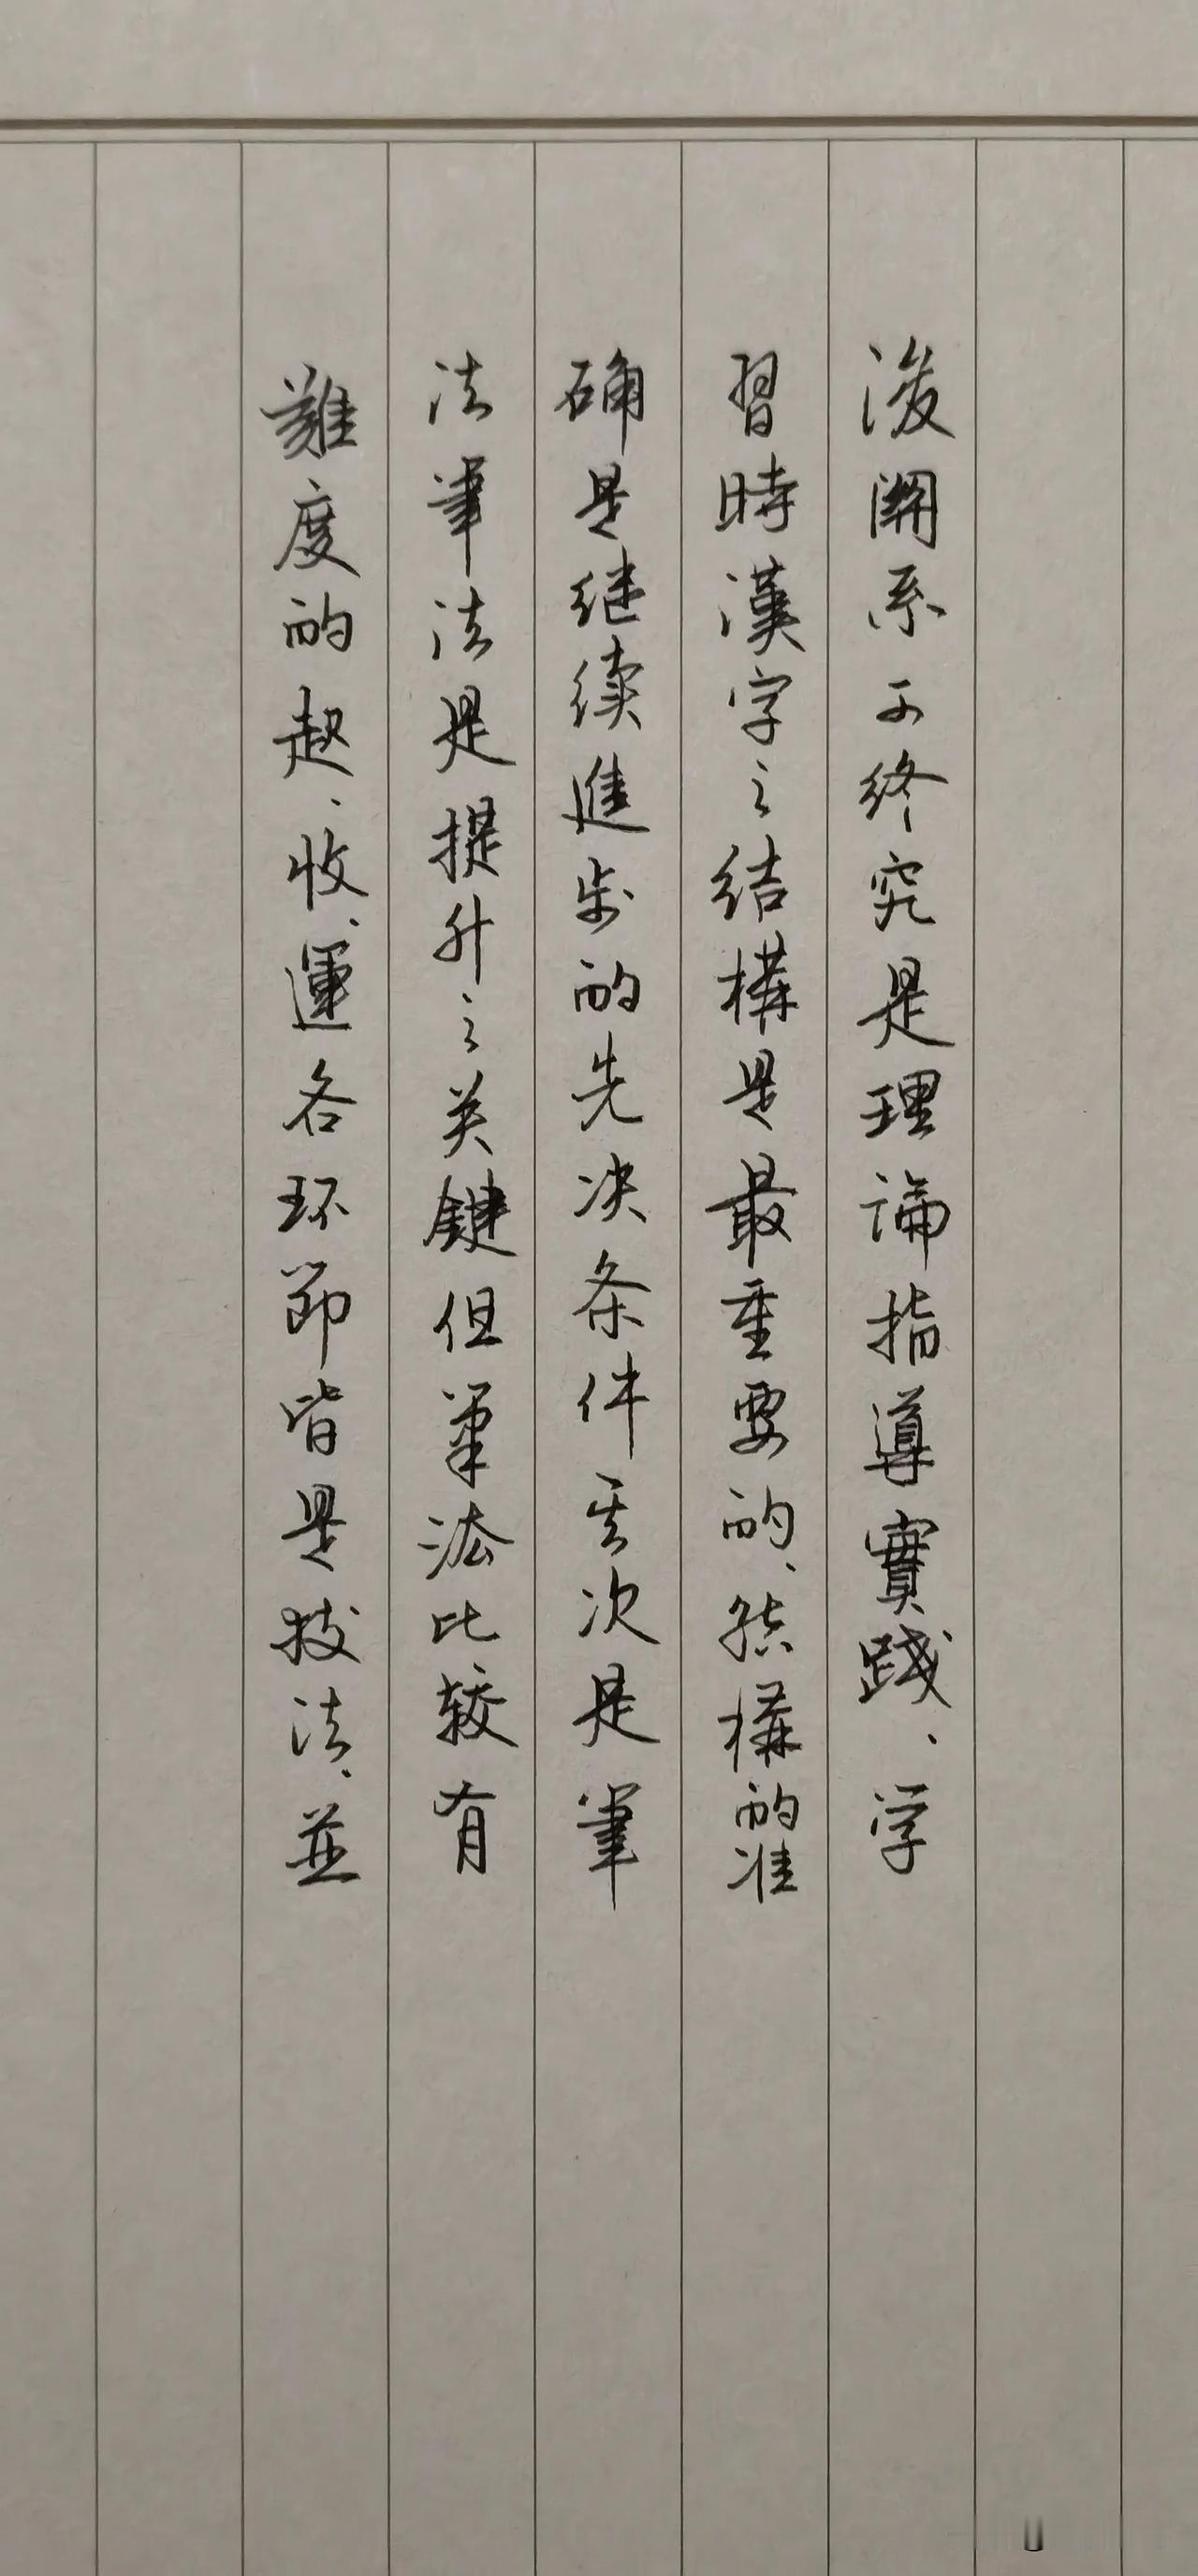 後関系不終究是理論指導實踐、学
習時漢字之结構是最重要的、结構的准
确是继续進步的先决条件其次是筆
法筆法是提升之关鍵但筆法比较有
難度的起、收、運各环節皆是技法、並